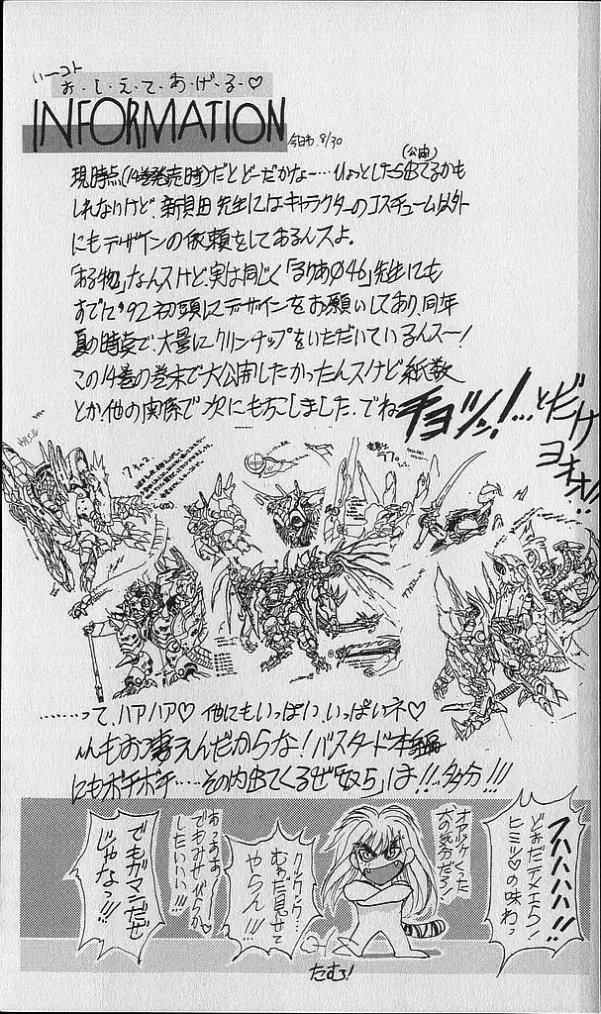 いーコト
お・し・え・て・あ・げ・る・♡
INFORMATION
今日わ.8/30
現時点(14巻発売時)だとどーだかなー…ひょっとしたら出てるかも
(公由)
しれないけど、新貝田先生にはキャラクターのコスチューム以外
にもデザインの依頼をしてあるんスよ。
「ある物」なんスけど、実は同じく「るりあ046」先生にも
すでに'92初頭にデザインをお願いしてあり、同年
夏の時点で、大量にクリンナップをいただいているんスー!
この14巻の巻末で大公開したかったんスけど紙数
とか他の関係で次にもちこしました.でね
チョッン!…とだけ
ヨキオ!!
……って、ハアハア♡ 他にもいっぱい、いっぱいネ♡
もおっ凄えんだからな!バスタード本編
にもボチボチ……その内出てくるぜ「奴ら」は!!、多分!!!
フハハハハ!!
どぉだテメエら!
ヒミツ♡の味わっ
オアズケくった
犬の気分だろう!
クックック…
むぁだ見せて
やらん!!!
あっああー
でもみせびらか
したいいい!!
でもガマンだぜ
じゃなっ!!!
たむろ!